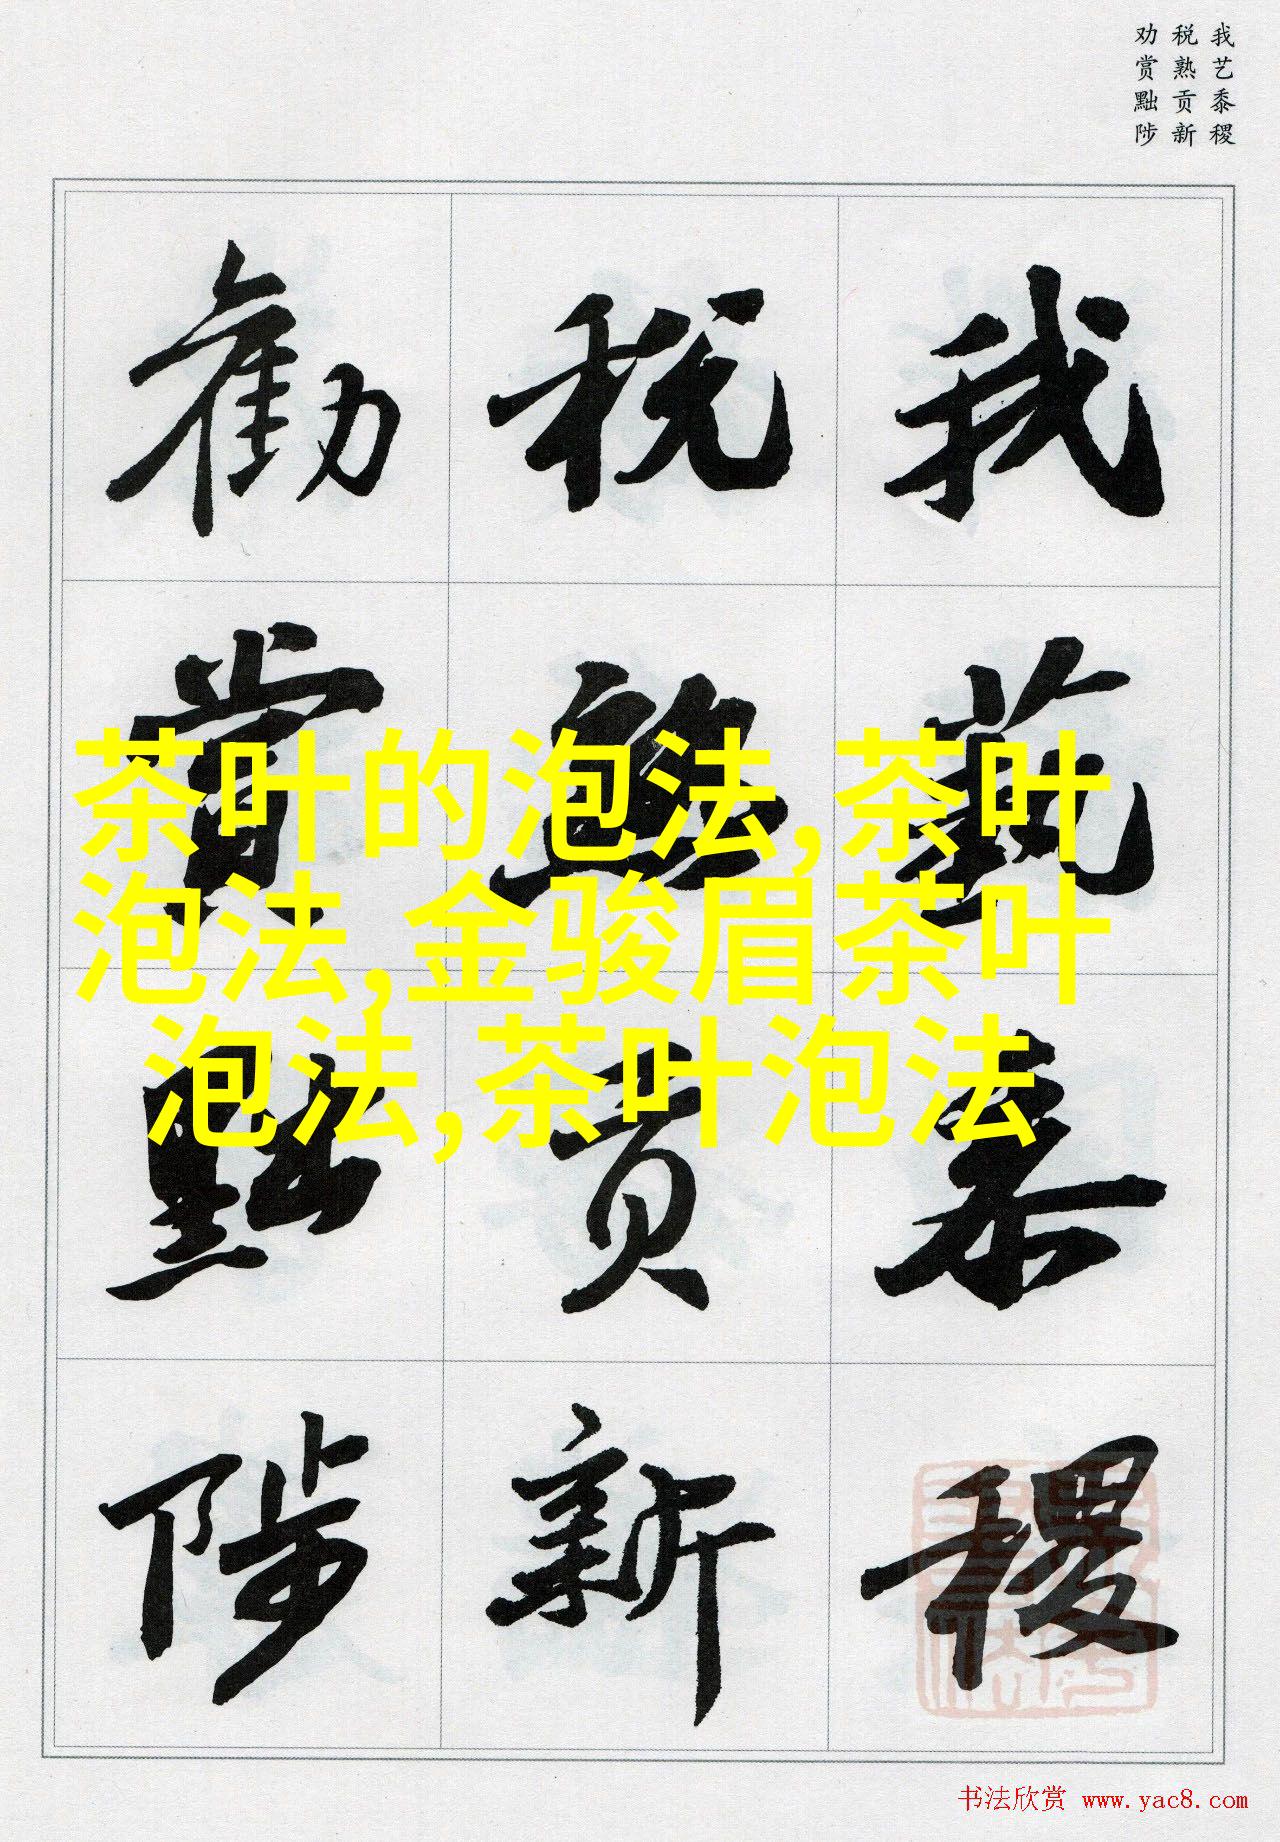 我艺黍稷
税熟贡新
劝赏黜陟
我藝黍稷
税熟贡新
勸賞黜陟
茶叶的泡法,茶叶
泡法,金骏眉茶叶
泡法,茶叶泡法
书法欣赏 www.yac8.com